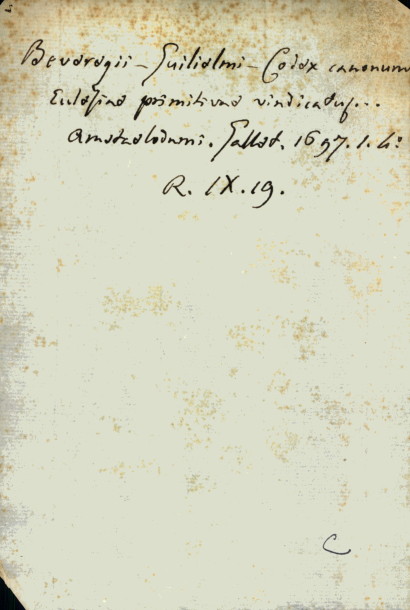 Beveregii - Guilielmi - Codex canonum
Eclesiae primitivae vindicatus...
Amstaelodami. Gallet. 1697. 1. 4º
R. IX. 19.
C